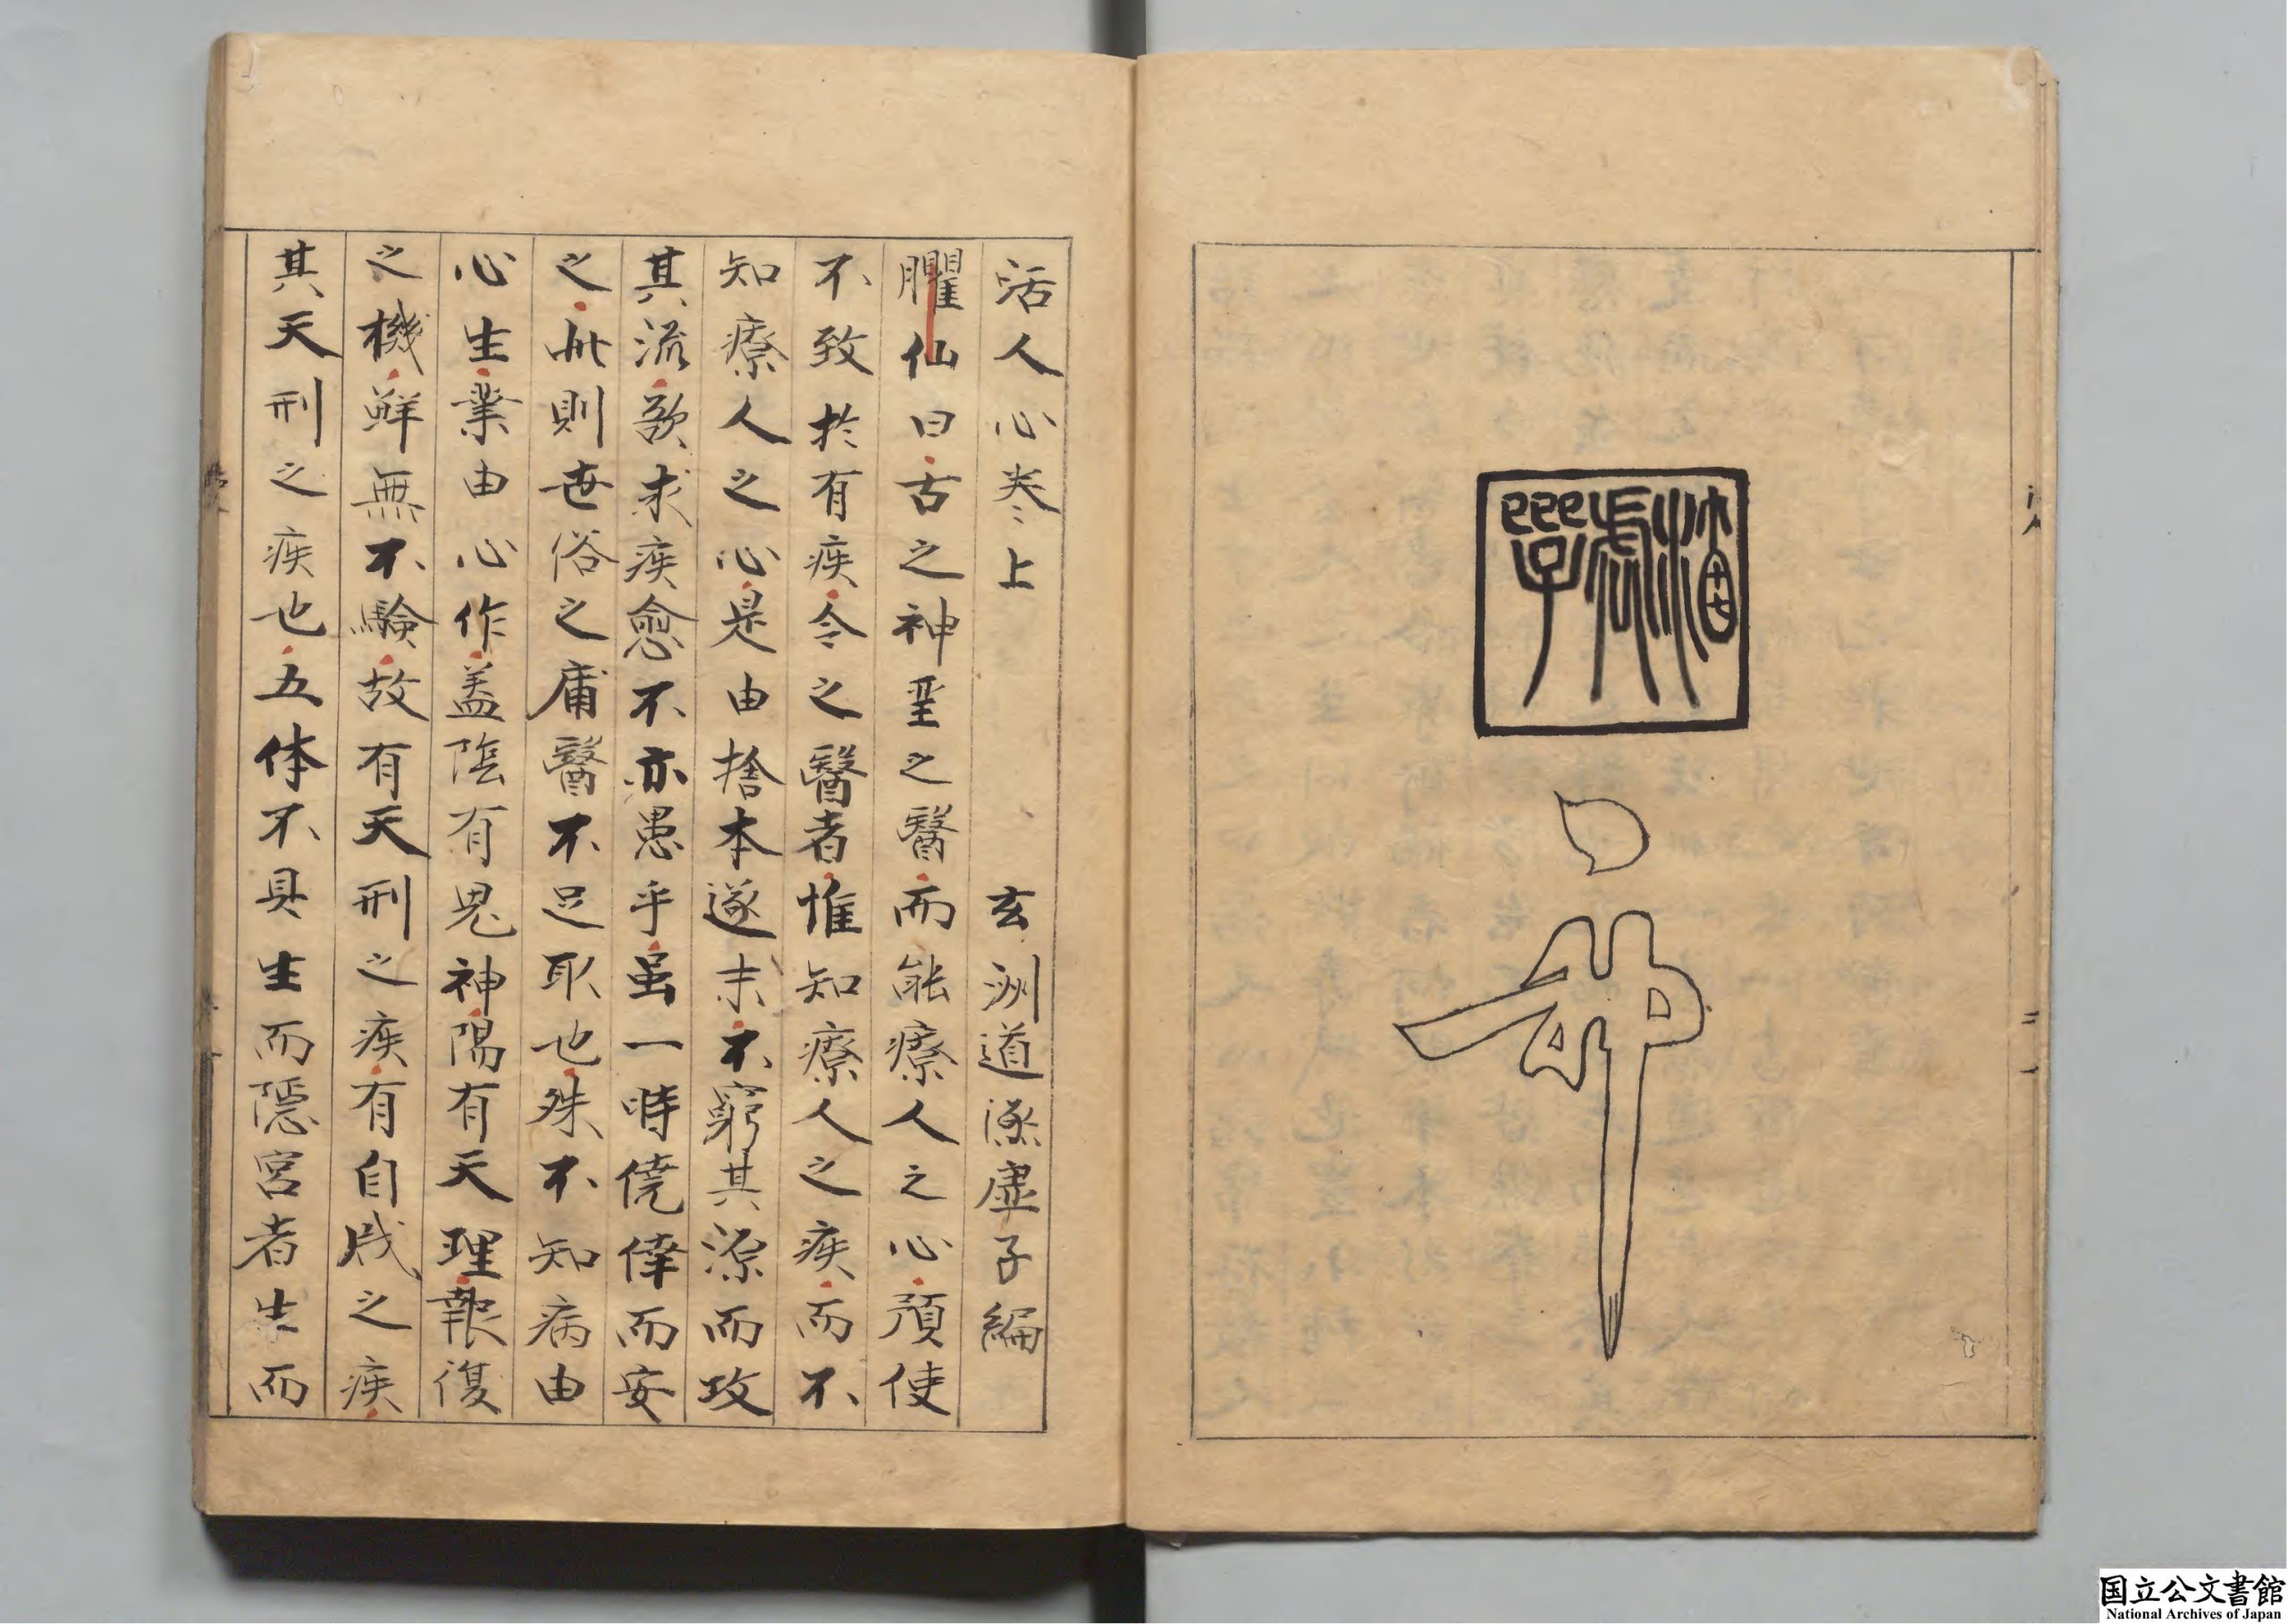 活人心卷上　玄洲道涵虚子編
臞仙曰古之神聖之醫而能療人之心預使
不致於有疾令之醫者惟知療人之疾而不
知療人之心是由捨本逐末不窮其源而攻
其流欲求疾愈不亦愚乎虽一時僥倖而安
之此則世俗之庸醫不足取也殊不知病由
心生業由心作盖陰有鬼神陽有天理報復
之機鮮無不驗故有天刑之疾有自戕之疾
其天刑之疾也五体不具生而隠宮者生而
国立公文書館
National Archives of Japan